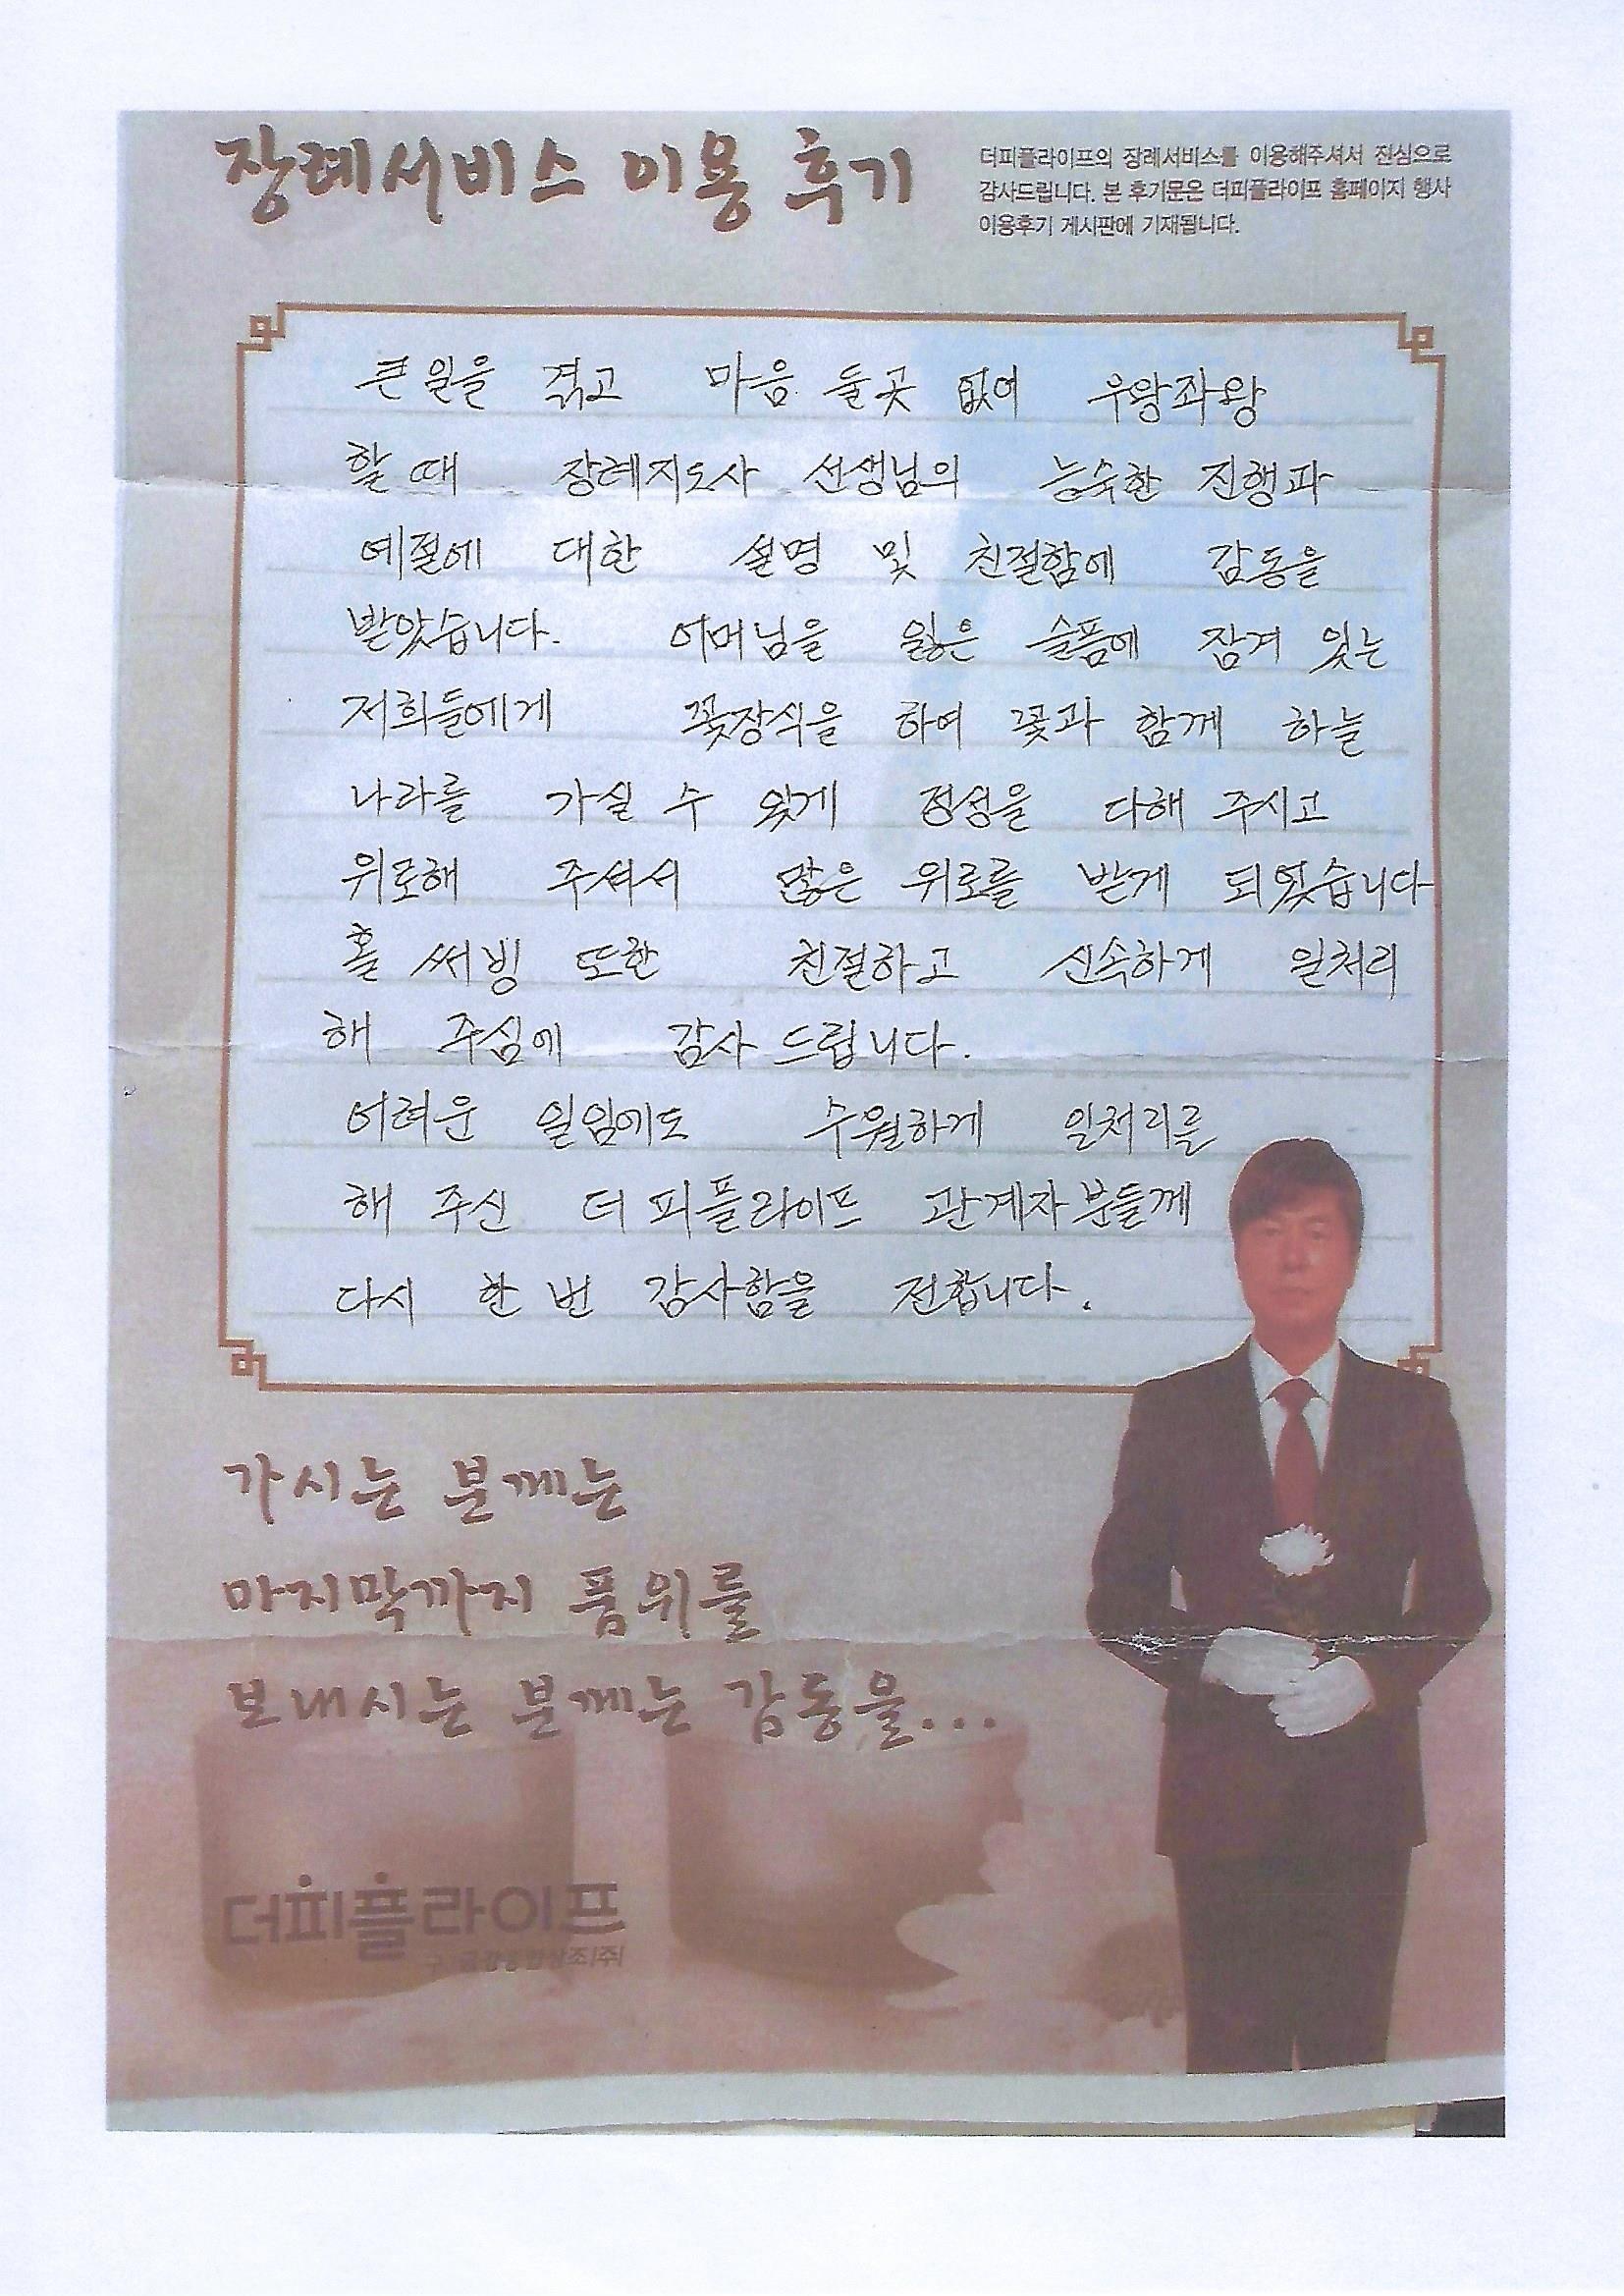 장례서비스 이용 후기
더피플라이프의 장례서비스를 이용해주셔서 진심으로
감사드립니다. 본 후기문은 더피플라이프 홈페이지 행사
이용후기 게시판에 기재됩니다.
큰일을 겪고 마음 둘곳 없어 우왕좌왕
할 때 장례지도사 선생님의 능숙한 진행과
예절에 대한 설명 및 친절함에 감동을
받았습니다. 어머님을 잃은 슬픔에 잠겨 있는
저희들에게 꽃장식을 하여 꽃과 함께 하늘
나라를 가실 수 있게 정성을 다해 주시고
위로해 주셔서 많은 위로를 받게 되었습니다
홀 써빙 또한 친절하고 신속하게 일처리
해 주심에 감사 드립니다.
어려운 일임에도 수월하게 일처리를
해 주신 더 피플라이프 관계자 분들께
다시 한 번 감사함을 전합니다.
가시는 분께는
마지막까지 품위를
보내시는 분께는 감동을...
더피플라이프
구 금강종합상조(주)